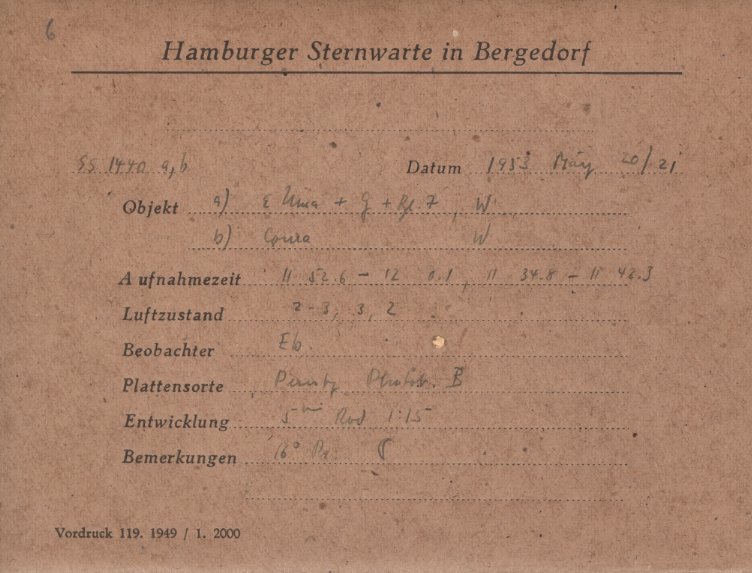 6
Hamburger Sternwarte in Bergedorf
SS 1440 a, b Datum 1953 März 20/21
Objekt a) ε Uma + G + Bl. 7, W
b) Coma W
Aufnahmezeit 11 52.6 – 12 0.1, 11 34.8 – 11 42.3
Luftzustand 2-3, 3, 2
Beobachter Eb.
Plattensorte B
Entwicklung 5 min Rod 1:15
Bemerkungen 16° Pr.
Vordruck 119. 1949 / 1. 2000